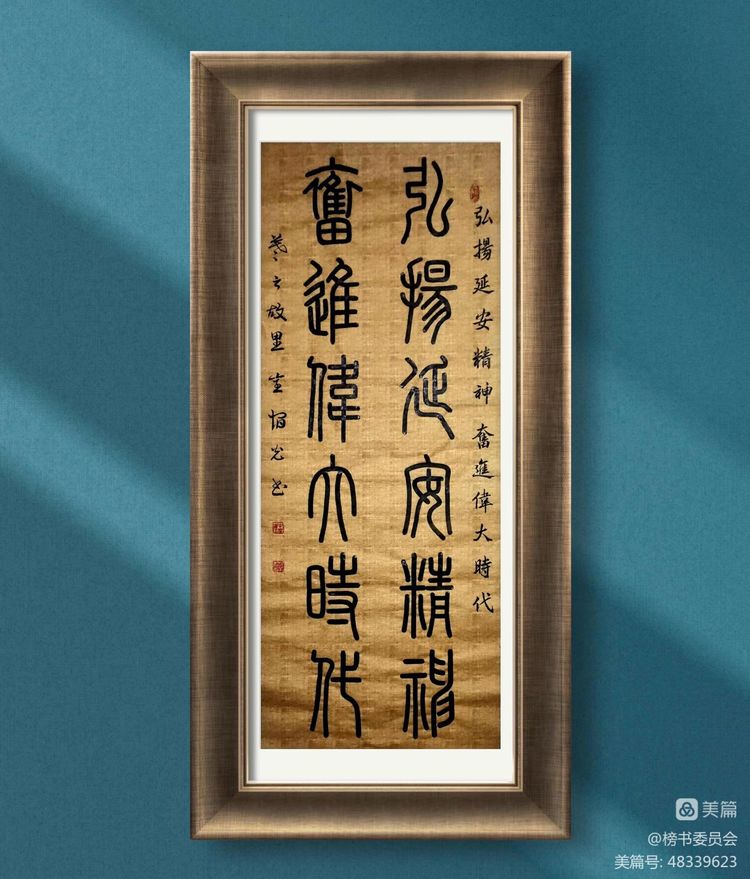 弘揚延安精神 奮進偉大時代
弘揚延安精神
奮進偉大時代
羲之故里 书
美篇
@榜书委员会
美篇号: 48339623